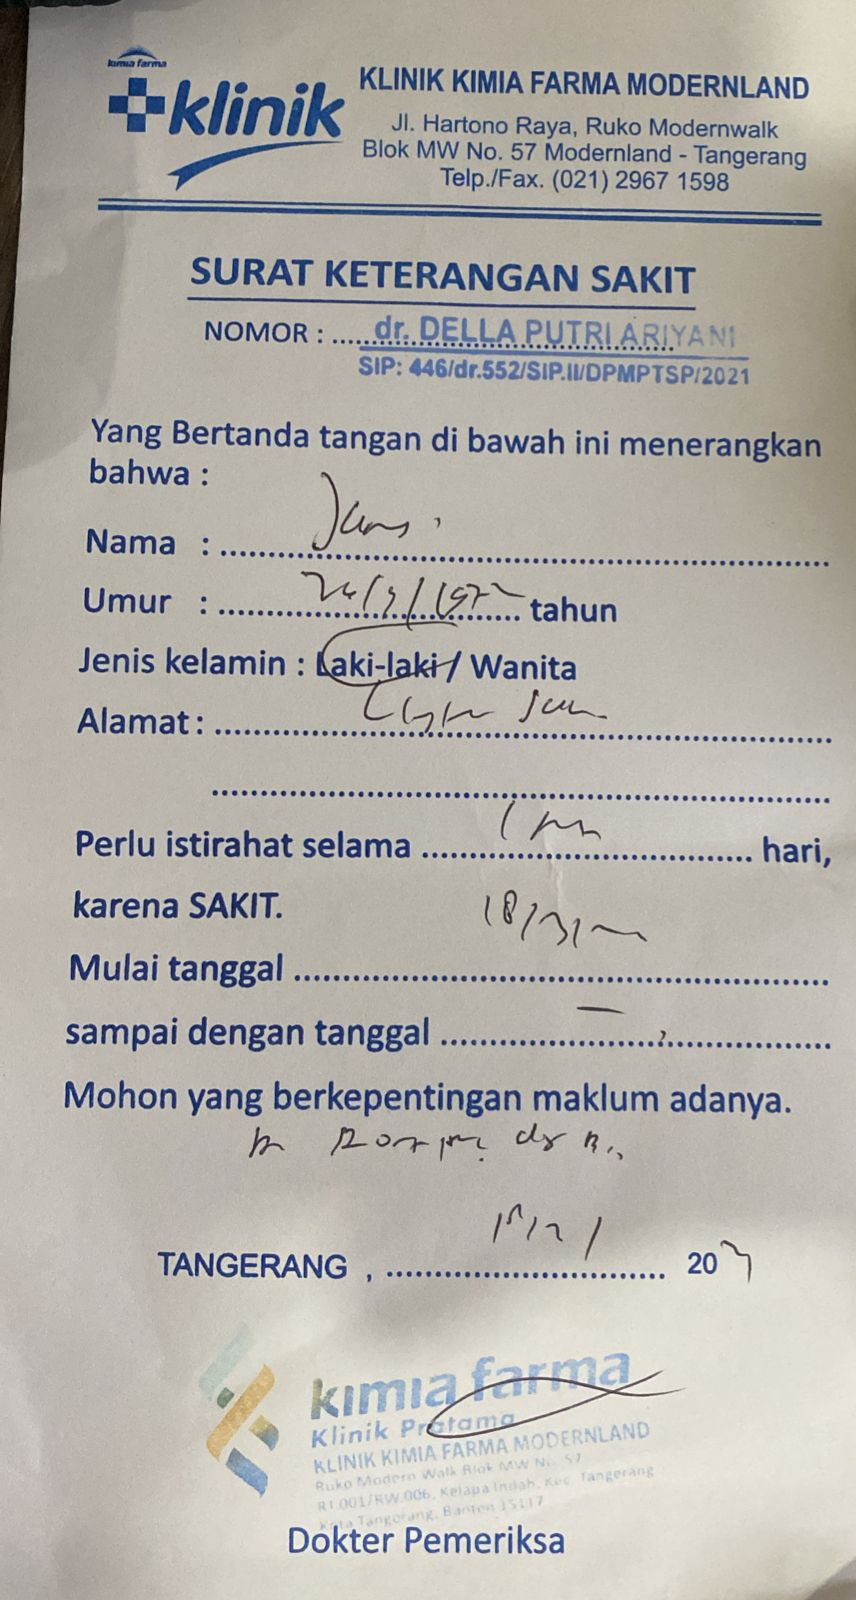 kimia farma
klinik
KLINIK KIMIA FARMA MODERNLAND
Jl. Hartono Raya, Ruko Modernwalk
Blok MW No. 57 Modernland - Tangerang
Telp./Fax. (021) 2967 1598
SURAT KETERANGAN SAKIT
NOMOR : dr. DELLA PUTRI ARIYANI
SIP: 446/dr.552/SIP.II/DPMPTSP/2021
Yang Bertanda tangan di bawah ini menerangkan
bahwa :
Nama :
Umur : tahun
Jenis kelamin : Laki-laki / Wanita
Alamat :
Perlu istirahat selama hari,
karena SAKIT.
Mulai tanggal
sampai dengan tanggal
Mohon yang berkepentingan maklum adanya.
TANGERANG , 20
kimia farma
Klinik Pratama
KLINIK KIMIA FARMA MODERNLAND
Ruko Modern Walk Blok MW No. 57
RT.001/RW.006, Kelapa Indah, Kec. Tangerang
Kota Tangerang, Banten 15117
Dokter Pemeriksa